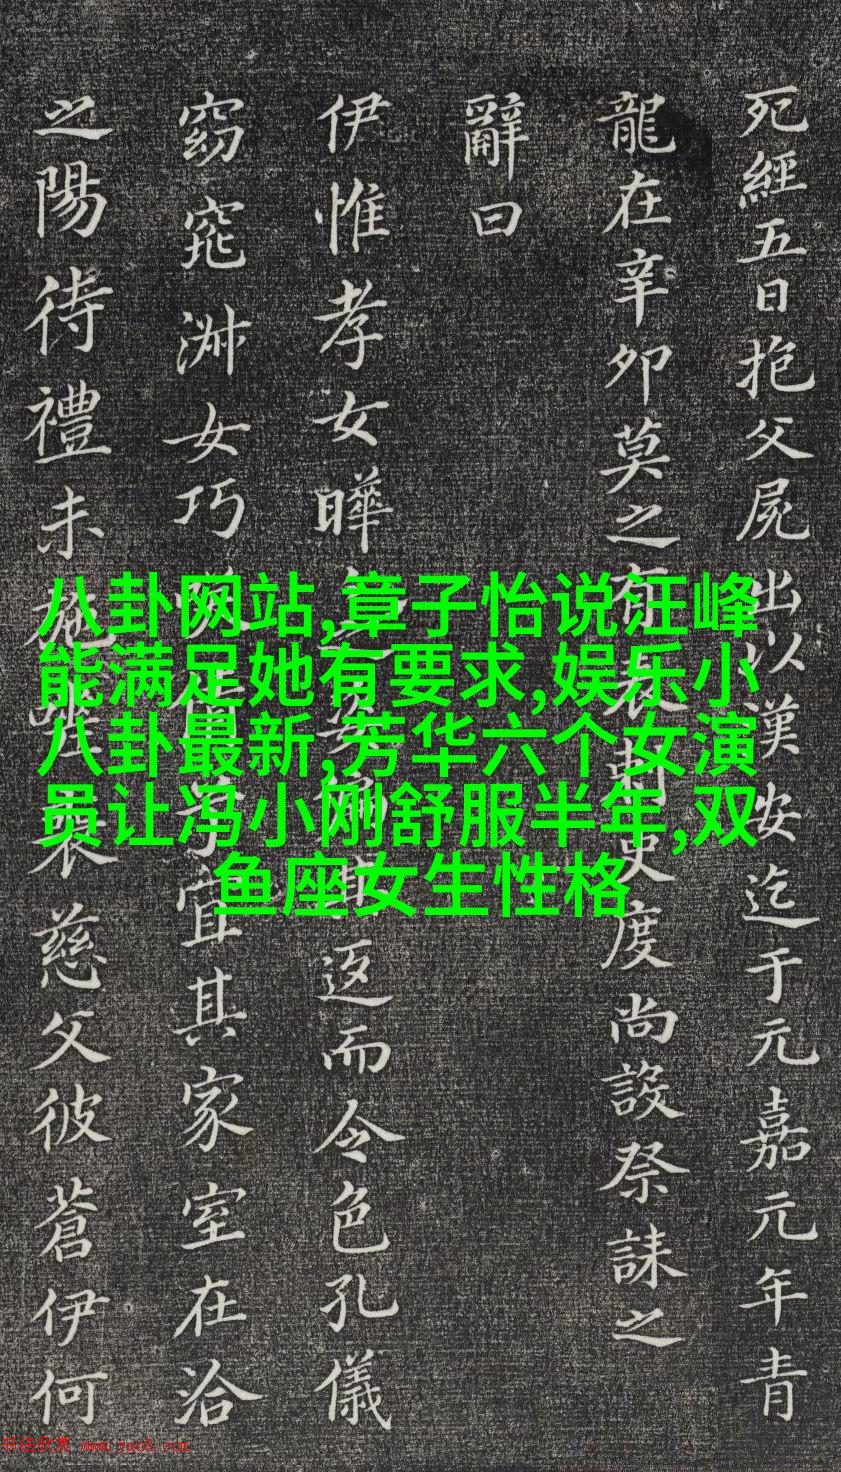 死經五日抱父屍出以漢安迄于元嘉元年青
龍在辛卯莫之有表度尚設祭誄之
辭曰
伊惟孝女曄之姿偏其返而令色孔儀
窈窕淑女巧笑倩兮宜其家室在洽
之陽待禮未施嗟喪慈父彼蒼伊何
八卦网站,章子怡说汪峰
能满足她有要求,娱乐小
八卦最新,芳华六个女演
员让冯小刚舒服半年,双
鱼座女生性格
书法欣赏 www.yac8.com